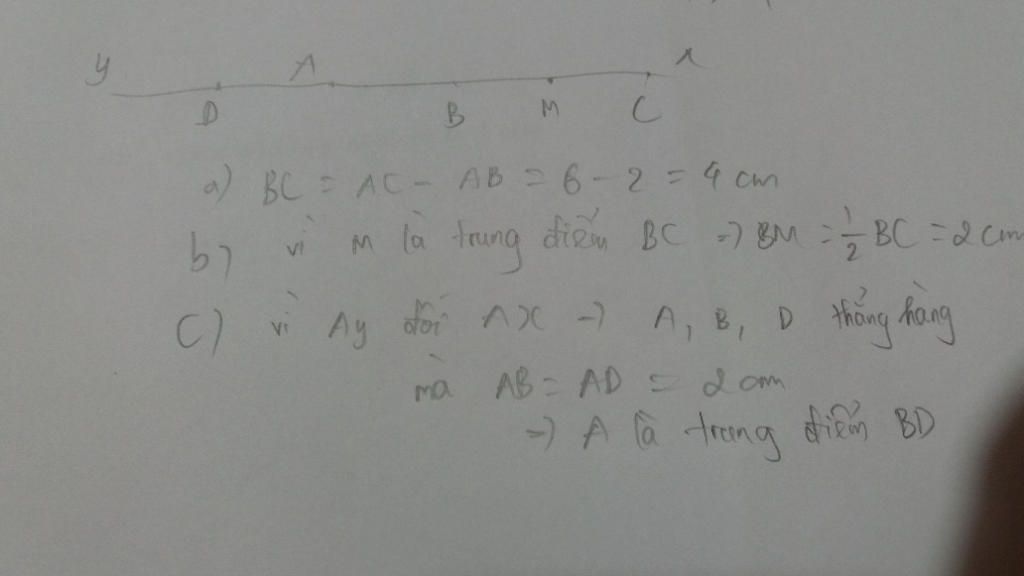 y A x
D B M C
a) BC = AC - AB = 6 - 2 = 4 cm
b) vì M là trung điểm BC => BM = 1/2 BC = 2 cm
C) vì Ay đối Ax -> A, B, D thẳng hàng
mà AB = AD = 2 cm
=> A là trung điểm BD